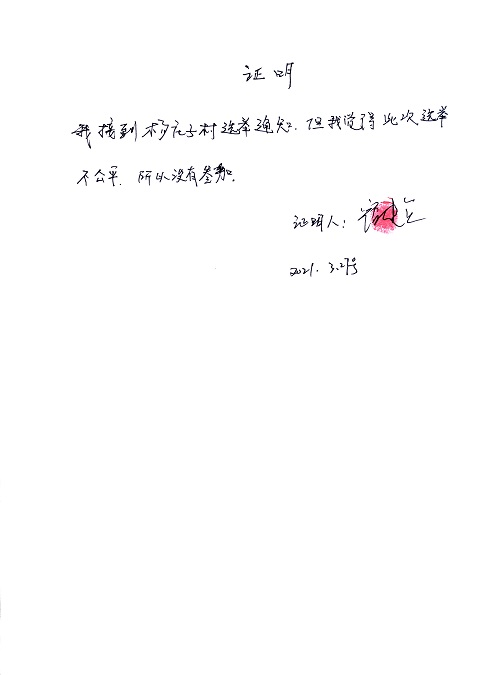 证明
我接到杨庄子村选举通知，但我觉得此次选举
不公平，所以没有参加。
证明人：
2021.3.27号